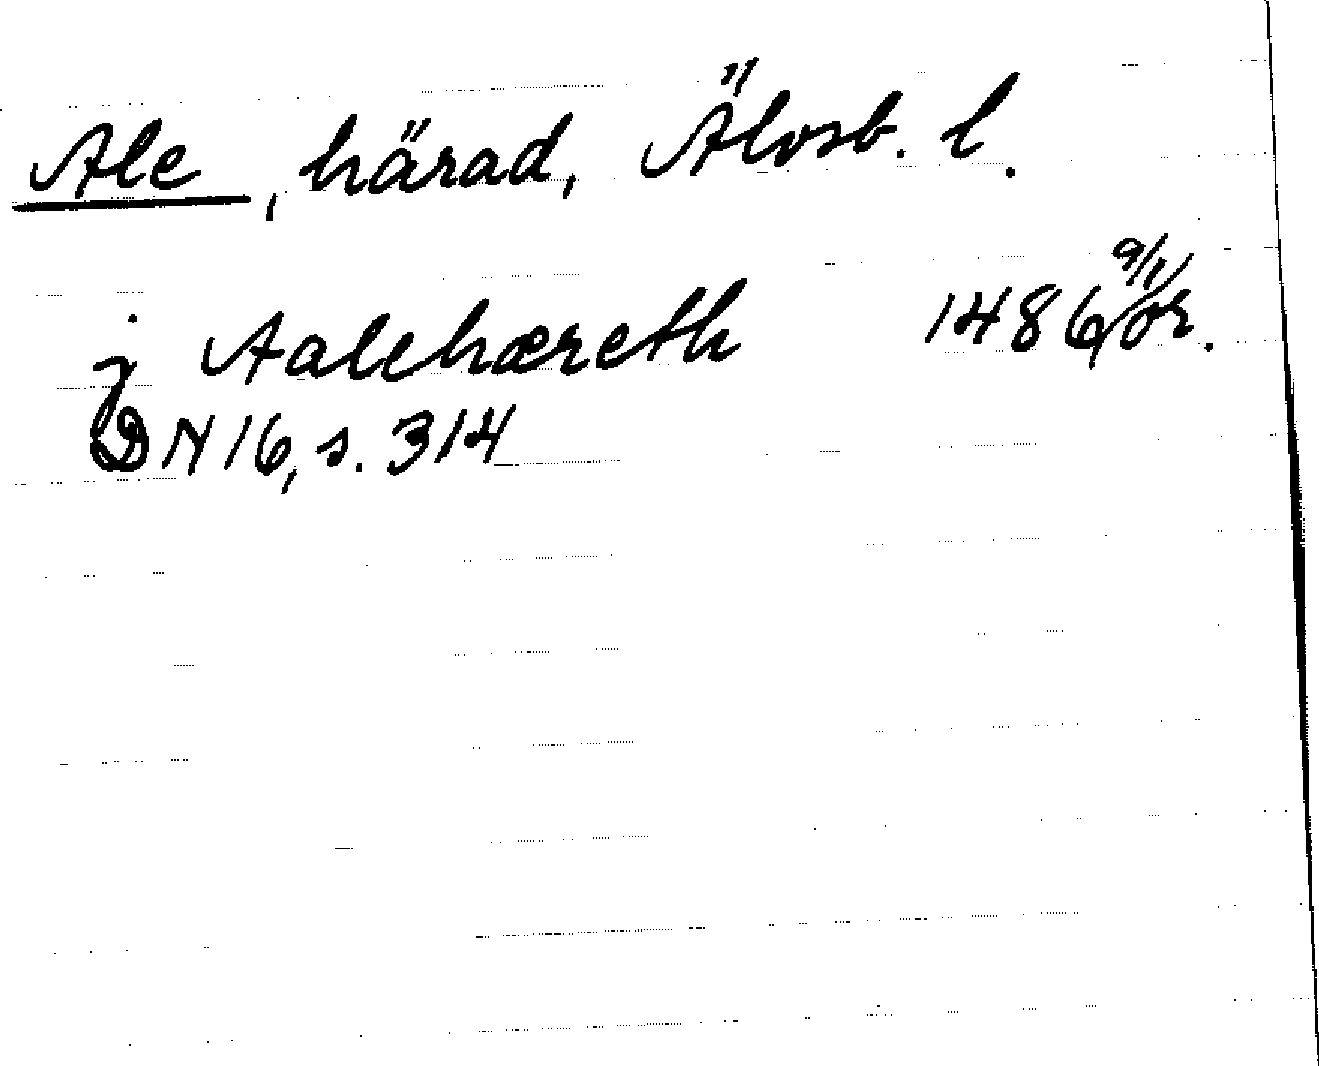 Ale, härad, Älvsb. l.
j Aalehæreth 1486 9/11 or.
DN 16, s. 314